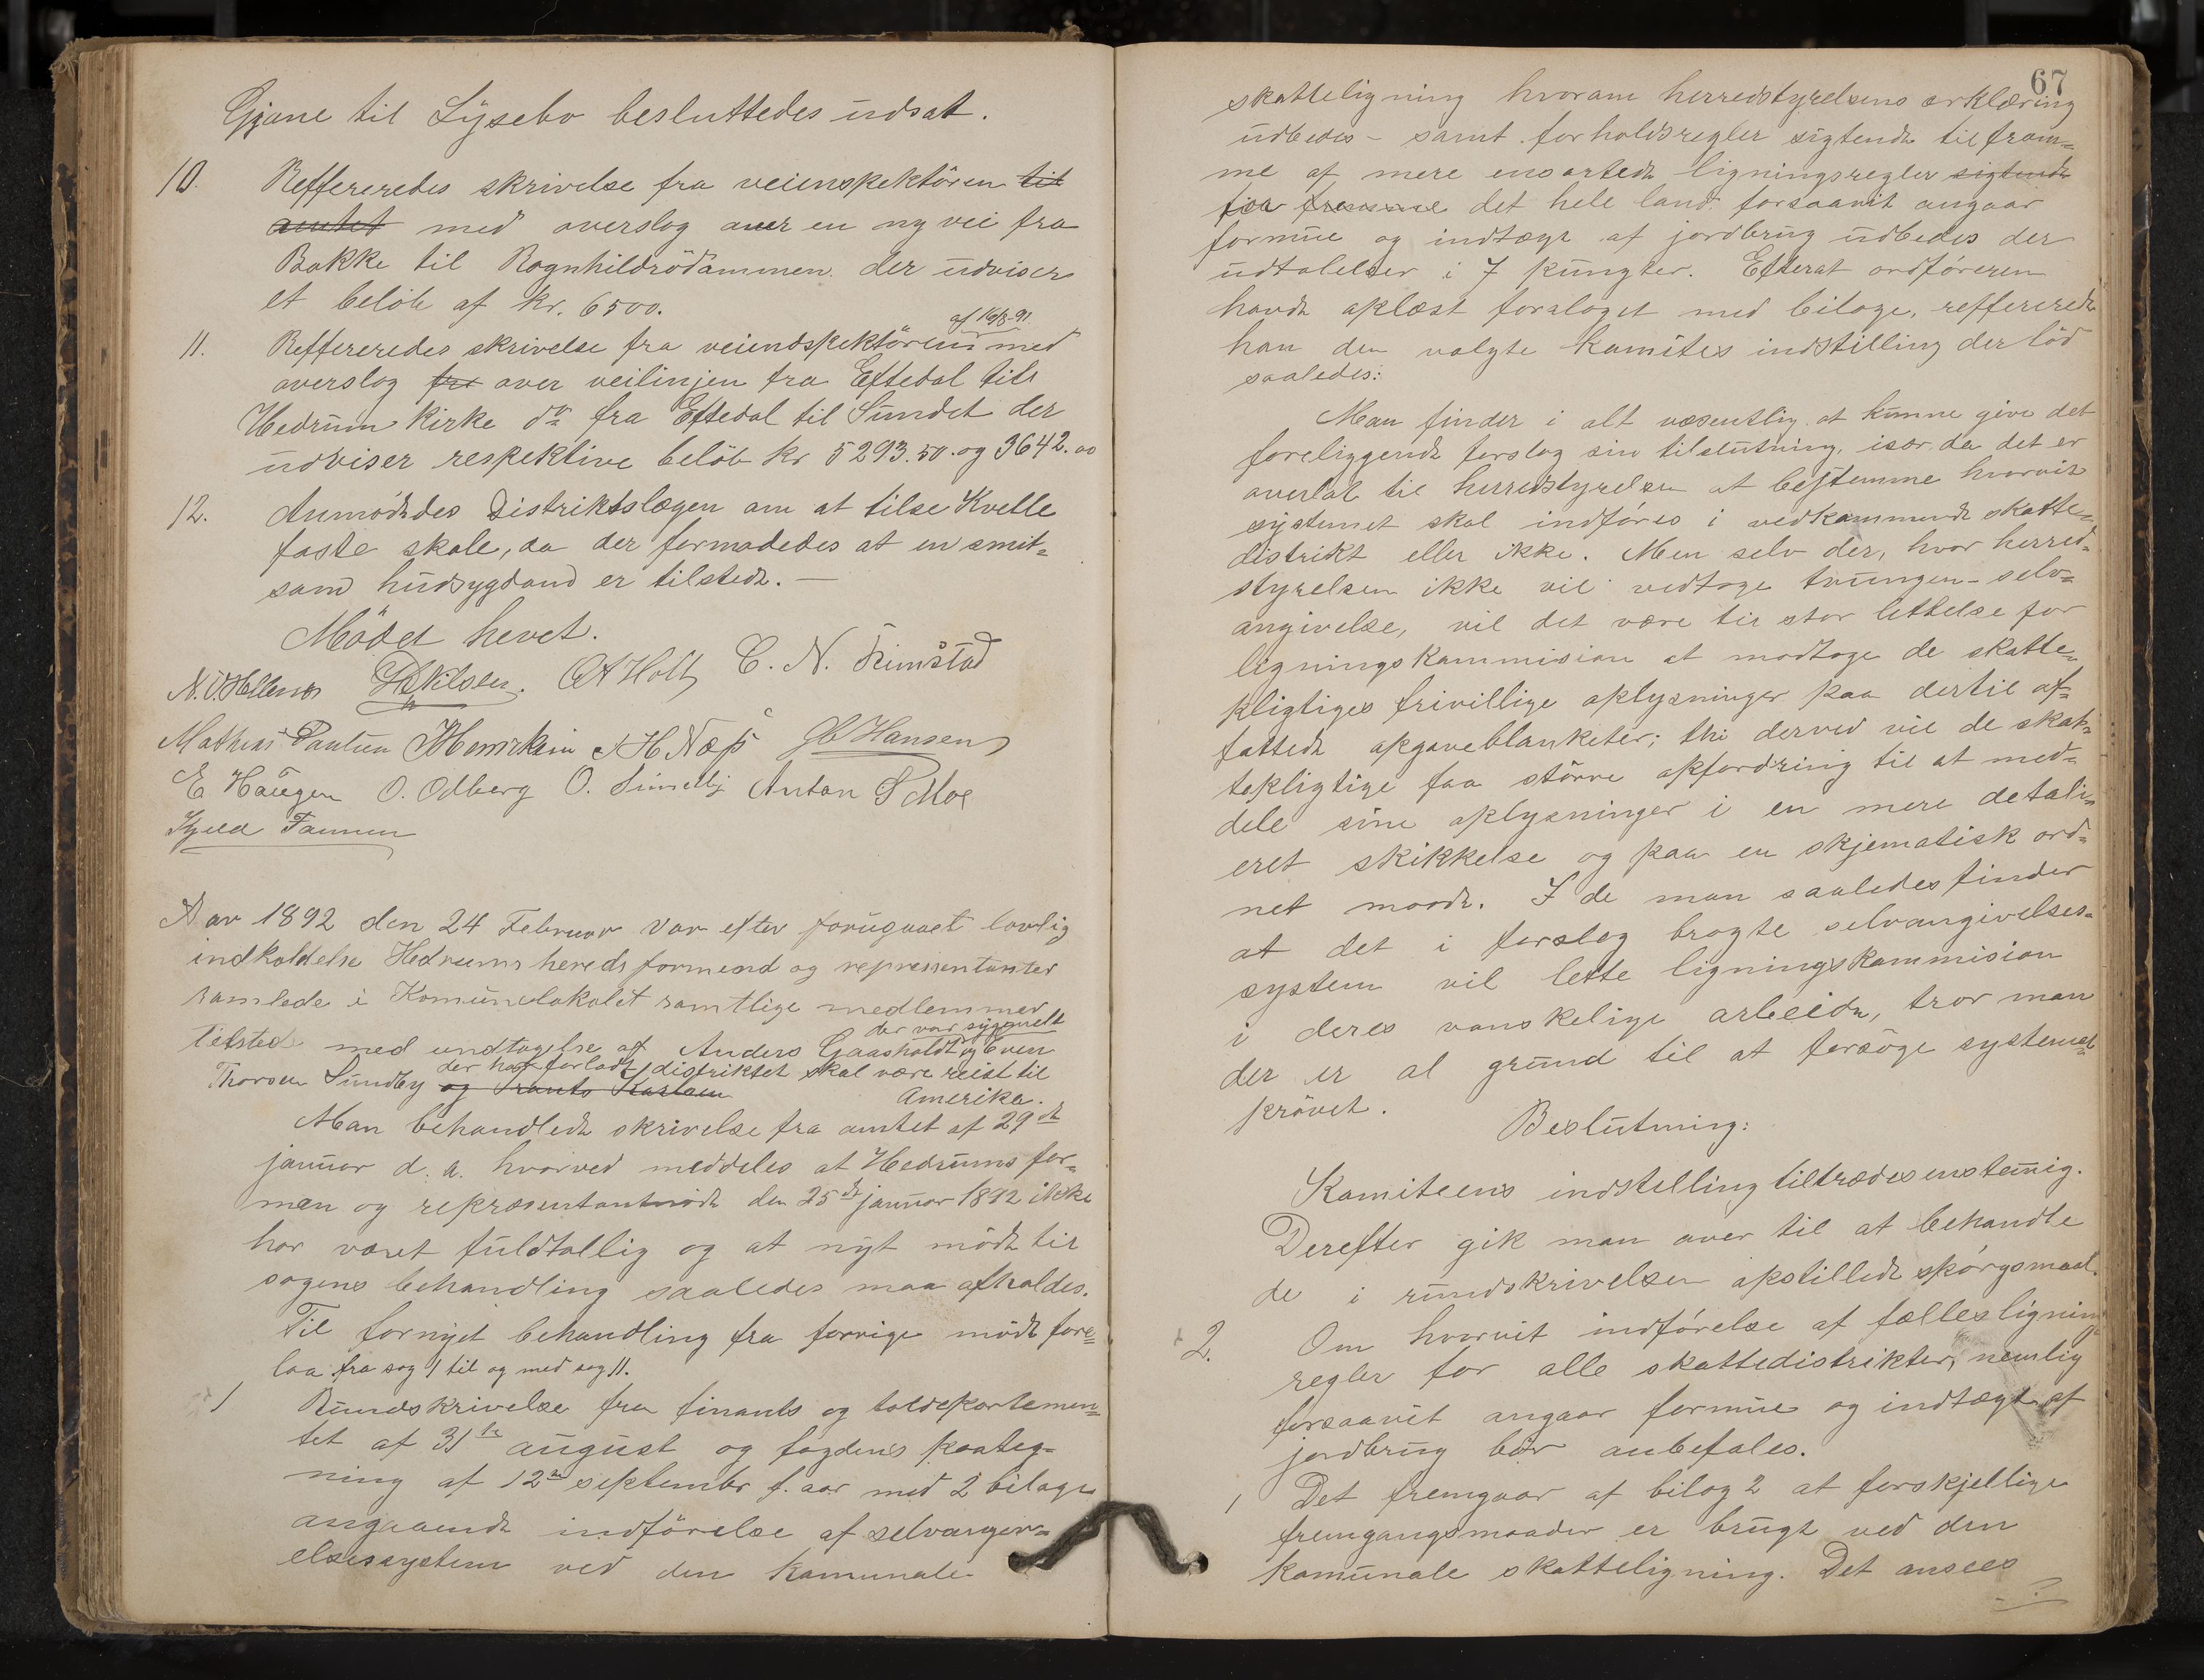 Gjone til Lysebo besluttedes udsat.
10. Reffereredes skrivelse fra veienspektören til
amtet med overslog over en ny vei fra
Bakke til Rognhildrödammen der udviser
et belöb af kr. 6500.
af 16/3-91
11. Reffereredes skrivelse fra veiendspektören med
overslog fra over veilinjen fra Eftedal til
Hedrum Kirke do fra Eftedal til Sundet der
udviser respektive belöb kr 5293.50. og 3642.00
12. Anmödedes Distriktslægen om at tilse Kvelle
faste skole, da der formodedes at en smit-
som hudsygdom er tilstede. —
Mödet hevet.
OAHolt C. N. Rimstad
Mathias Paulsen Henriksen AHNæss Hansen
E Haugen O. Odberg O. Sundby Anton S Moe
Aar 1892 den 24 Februar var efter forugaaet lovlig
indkaldelse Hedrums hereds formend og representanter
samlede i Komunelokalet samtlige medlemmer
der var sygmeldt
tilstede med undtagelse af Anders Gaasholdt og Even
der har forladt distriktet skal være reist til
Thorsen Sundby og
Amerika.
Man behandlede skrivelse fra amtet af 29de
januar d. a. hvorved meddeles at Hedrums for-
men og repræsentantmöde den 25de januar 1892 ikke
har været fuldtallig og at nyt möde til
sagens behandling saaledes maa afholdes.
Til fornyet behandling fra forrige möde fore-
laa fra sag 1 til og med sag 11.
1 Rundskrivelse fra finants og toldepartemen-
tet af 31te august og fogdens paateg-
ning af 12te septembr f. aar med 2 bilage
angaaende indförelse af selvangiv-
elsessystem ved den kamunale
67
skatteligning hvorom herredstyrelsens erklæring
udbedes - samt forholdsregler sigtende til from-
me af mere ensartede ligningsregler sigtende
for fremme det hele land forsaavit angaar
formue og indtægt af jordbrug udbedes der
udtalelser i 7 pungter. Efterat ordföreren
havde oplæst forslaget med bilage, reffererede
han den valgte komites indstilling der löd
saaledes:
Man finder i alt væsentlig at kunne give det
foreliggende forslag sin tilslutning, især da det er
overlat til herredstyrelsen at bestemme hvorvit
systemet skal indföres i vedkommende skatte-
distrikt eller ikke. Men selv der, hvor herred-
styrelsen ikke vil vedtage tvungen-selv-
angivelse, vil det være til stor lettelse for
ligningskammision at modtage de skatte-
pligtiges frivillige oplysninger paa dertil af-
fattede opgaveblanketer; thi derved vil de skat-
tepligtige faa större opfordring til at med-
dele sine oplysninger i en mere detali-
eret skikkelse og paa en skjematisk ord-
net maade. I de man saaledes finder
at det i forslag bragte selvangivelses-
system vil lette ligningskammision
i deres vanskelige arbeide, tror man
der er al grund til at forsöge systemet
prövet.
Beslutning:
Kamiteens indstelling tiltrædes enstemig.
Derefter gik man over til at behandle
de i rundskrivelsen opstillede spörgsmaal.
2. Om hvorvit indförelse af fælles ligning
regler for alle skattedistrikter, nemlig
forsaavit angaar formue og indtægt af
jordbrug bör anbefales.
1 Det fremgaar af bilag 2 at forskjellige
fremgangsmaader er brugt ved den
kamunale skatteligning. Det ansees